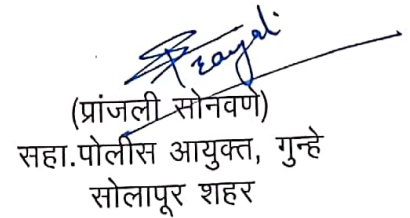 (प्रांजली सोनवणे)
सहा.पोलीस आयुक्त, गुन्हे
सोलापूर शहर